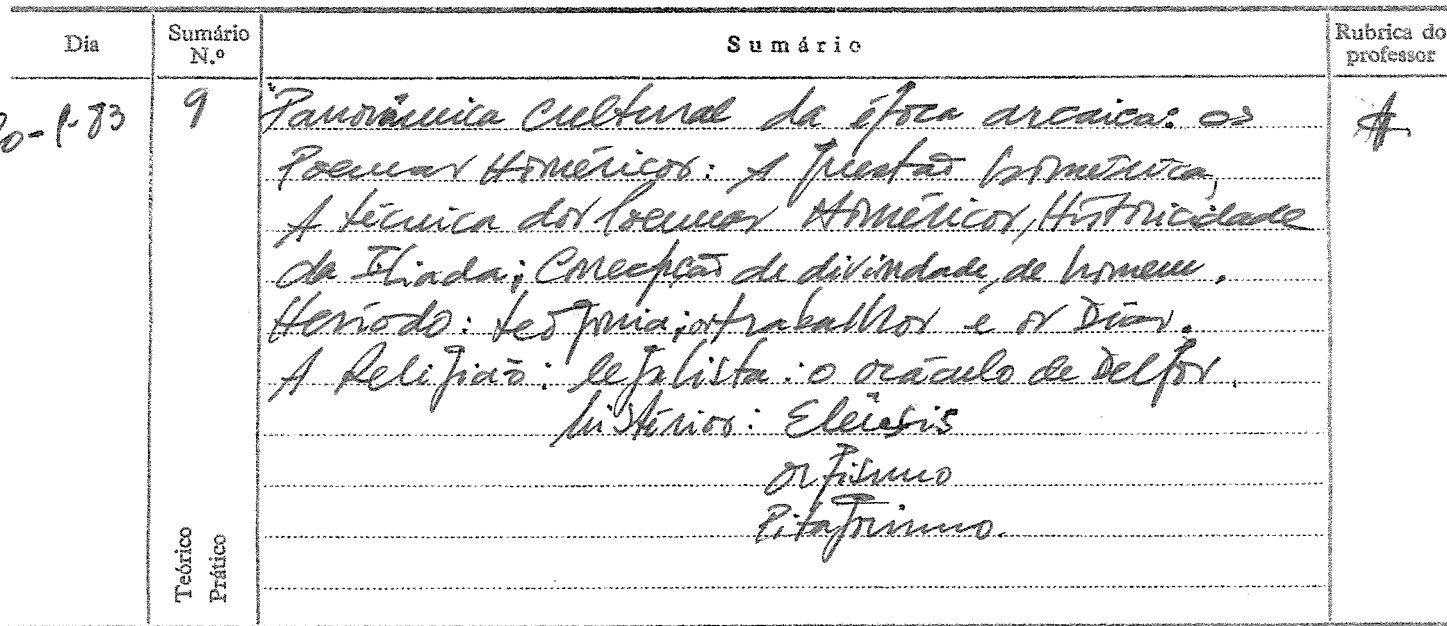 Dia
Sumário N.º
Sumário
Rubrica do professor
9
Panorâmica cultural da época arcaica: os
Poemas Homéricos: A questão homérica,
A técnica dos Poemas Homéricos, Historicidade
da Ilíada; Concepção de divindade, de homem.
Hesíodo: teogonia; os trabalhos e os Dias.
A Religião: legalista: o oráculo de Delfos.
Mistérios: Elêusis
Orfismo
Pitagorismo.
Teórico
Prático